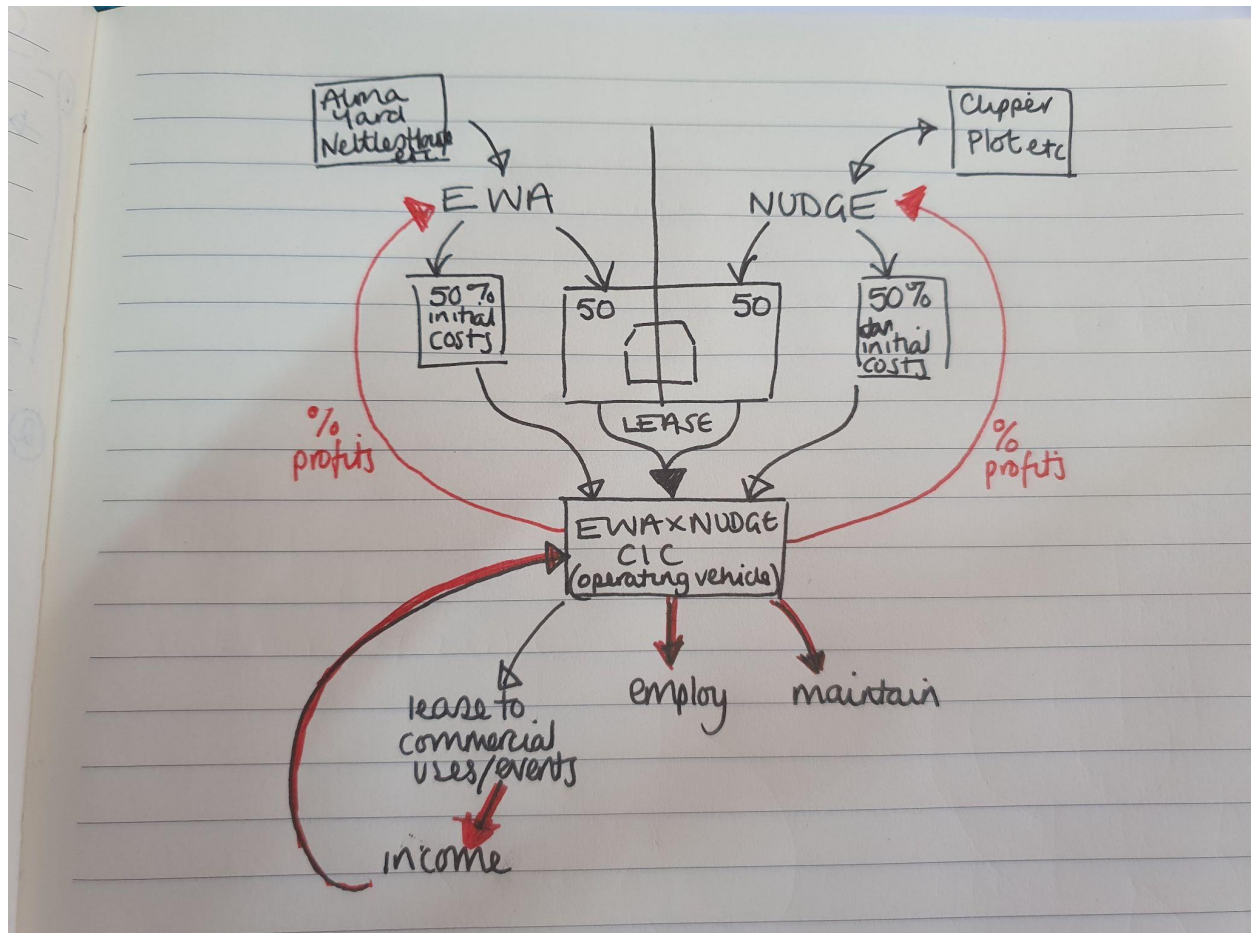 Alma
Yard
Nettles House
etc.
Clipper
Plot etc
EWA
NUDGE
50%
initial
costs
50
50
50%
initial
costs
LEASE
%
profits
%
profits
EWA x NUDGE
CIC
(operating vehicle)
lease to
commercial
uses/events
employ
maintain
income